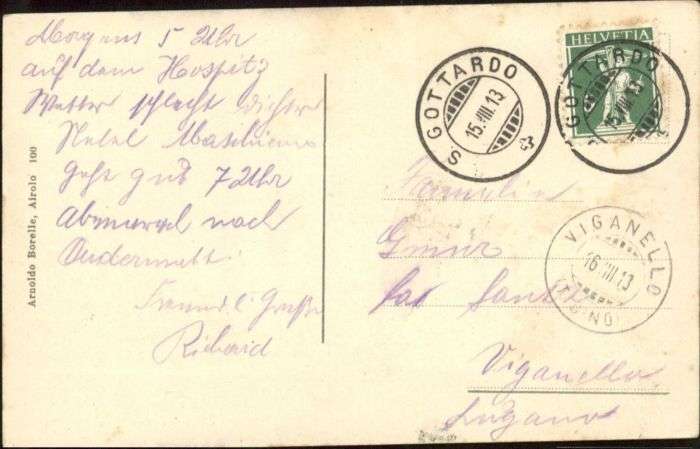 Morgens 5 Uhr
auf dem Hospitz
Wetter schlecht dichter
Nebel
geht gut 7 Uhr
Abmarsch nach
Andermatt.
Freundl. Grüsse
Richard
Arnoldo Borelle, Airolo 100
S. GOTTARDO
15.VIII.13
HELVETIA
S. GOTTARDO
15.VIII.13
Familie
Gmür
VIGANELLO
16.VIII.13
(TICINO)
Viganello
Lugano